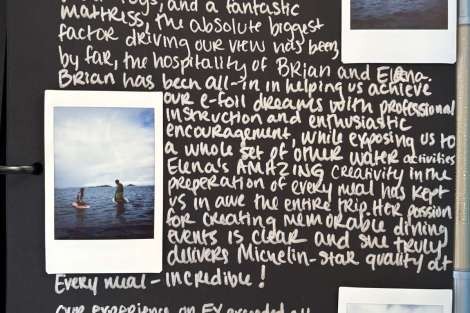 toys, and a fantastic
mattriss, the absolute biggest
factor driving our view has been,
by far, the hospitality of Brian and Elena.
Brian has been all-in in helping us achieve
our e-foil dreams with professional
instruction and enthusiastic
encouragement, while exposing us to
a whole set of other water activities
Elena's AMAZING creativity in the
preperation of every meal has kept
us in awe the entire trip. Her passion
for creating memorable dining
events is clear and she truly
delivers Michelin-star quality at
Every meal - incredible!
our experience on